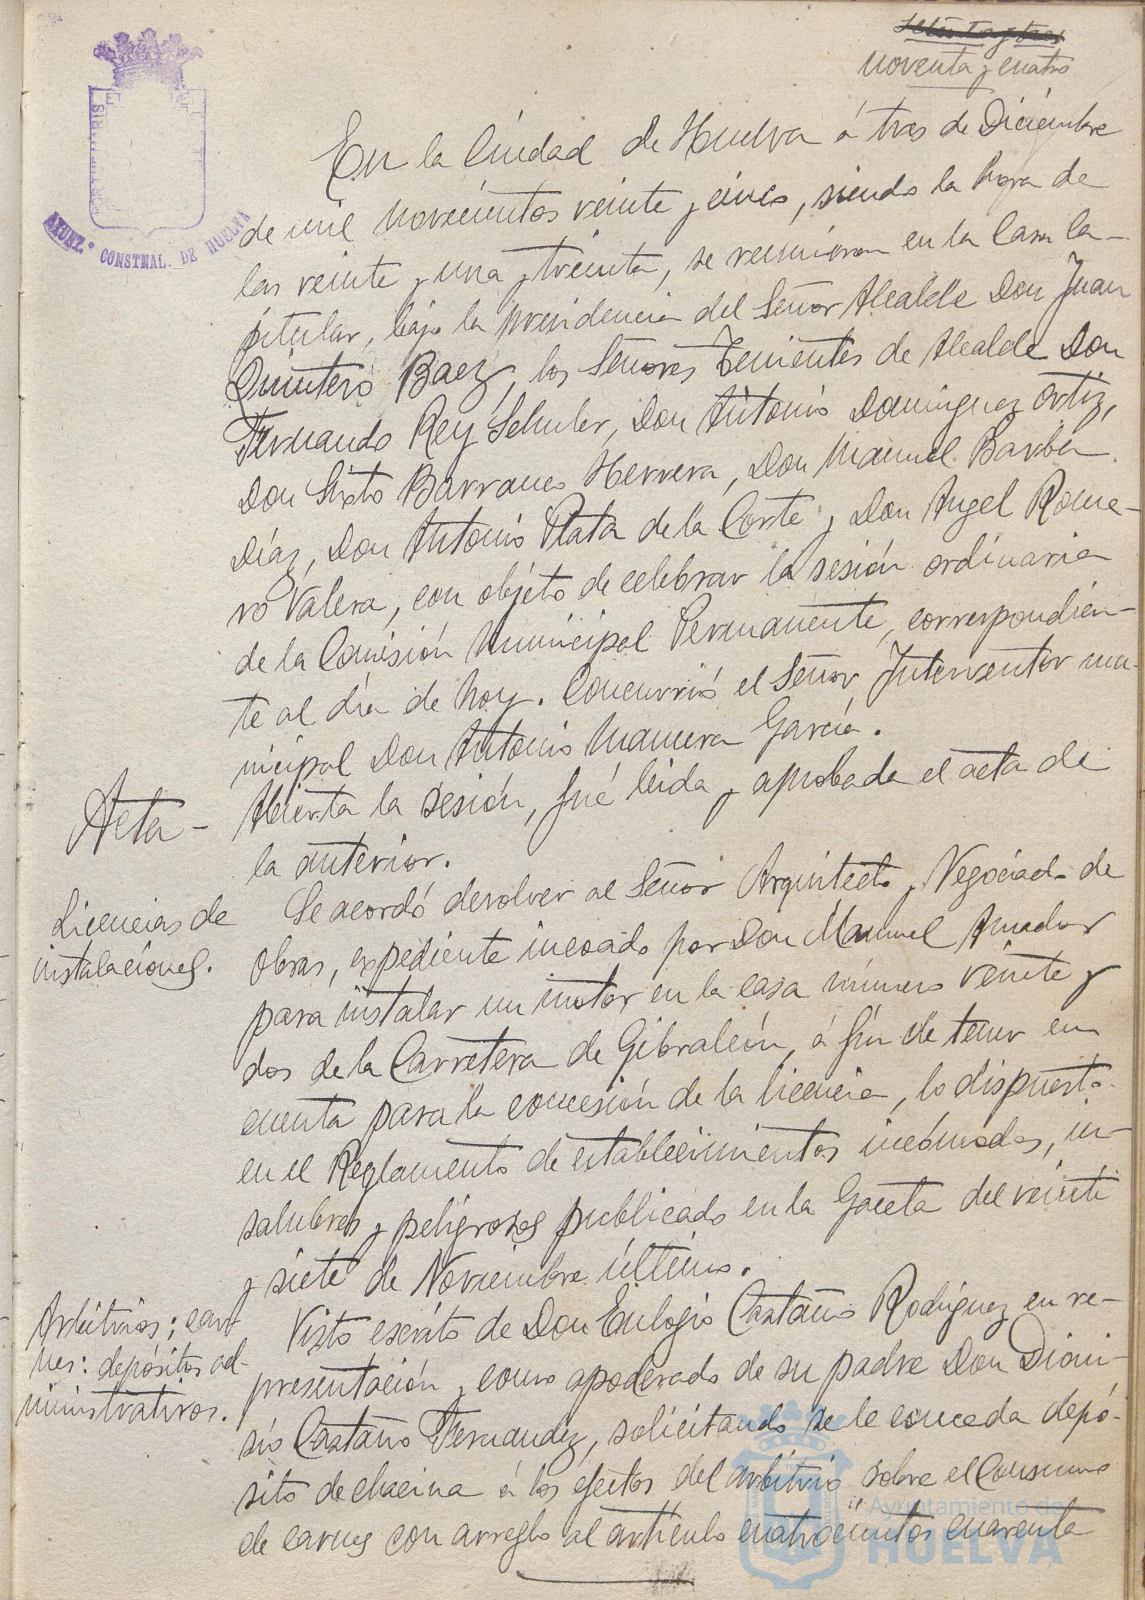 noventa y cuatro
AYUNT.º CONSTNAL. DE HUELVA
En la Ciudad de Huelva á tres de Diciembre
de mil novecientos veinte y cinco, siendo la hora de
las veinte y una y treinta, se reunieron en la Casa Ca-
pitular, bajo la presidencia del Señor Alcalde Don Juan
Quintero Baez, los Señores Tenientes de Alcalde Don
Fernando Rey Schuler, Don Antonio Dominguez Ortiz,
Don Sixto Barranco Herrera, Don Manuel Barba
Díaz, Don Antonio Plata de la Corte y Don Angel Rome-
ro Valera, con objeto de celebrar la sesión ordinaria
de la Comisión Municipal Permanente, correspondien-
te al día de hoy. Concurrió el Señor Interventor mu-
nicipal Don Antonio Mancera García.
Acta-
Abierta la sesión, fué leida y aprobada el acta de
la anterior.
Licencias de
instalaciones.
Se acordó devolver al Señor Arquitecto y Negociado de
Obras, expediente incoado por Don Manuel Amador
para instalar un motor en la casa número veinte y
dos de la Carretera de Gibraleón, á fin de tener en
cuenta para la concesión de la licencia, lo dispuesto
en el Reglamento de establecimientos incómodos, in-
salubres y peligrosos publicado en la Gaceta del veinte
y siete de Noviembre último.
Arbitrios; car-
nes: depósitos ad-
ministrativos.
Visto escrito de Don Eulogio Castaño Rodríguez en re-
presentación y como apoderado de su padre Don Dioni-
sio Castaño Fernandez, solicitando se le conceda depó-
sito de chacina á los efectos del arbitrio sobre el Consumo
de carnes con arreglo al artículo cuatrocientos cuarenta
Ayuntamiento de
HUELVA